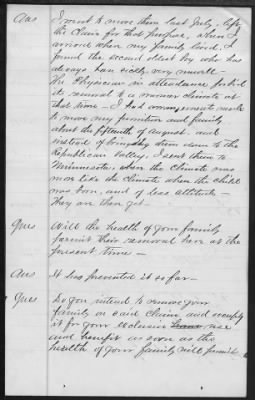 Ans I went to move them last July, left
the Claim for that purpose, when I
arrived where my family lived. I
found the second oldest boy who has
always been sickly, very
The Physician in attendance forbid
its removal to a warmer climate at
that time — I had arrangements made
to move my furniture and family
about the fifteenth of August. and
instead of bringing them down to the
Republican Valley. I sent them to
Minnesota, where the Climate was
more like the Climate where the child
was born, and of less altitude —
They are there yet —
Ques Will the health of your family
permit their removal here at the
present time —
Ans It has prevented it so far —
Ques Do you intend to remove your
family on said Claim and occupy
it for your exclusive use
and benefit as soon as the
health of your family will permit